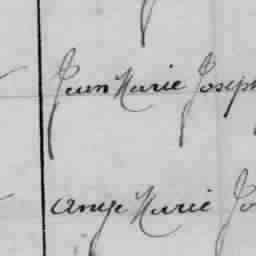 Jean Marie Joseph
Ange Marie Jo